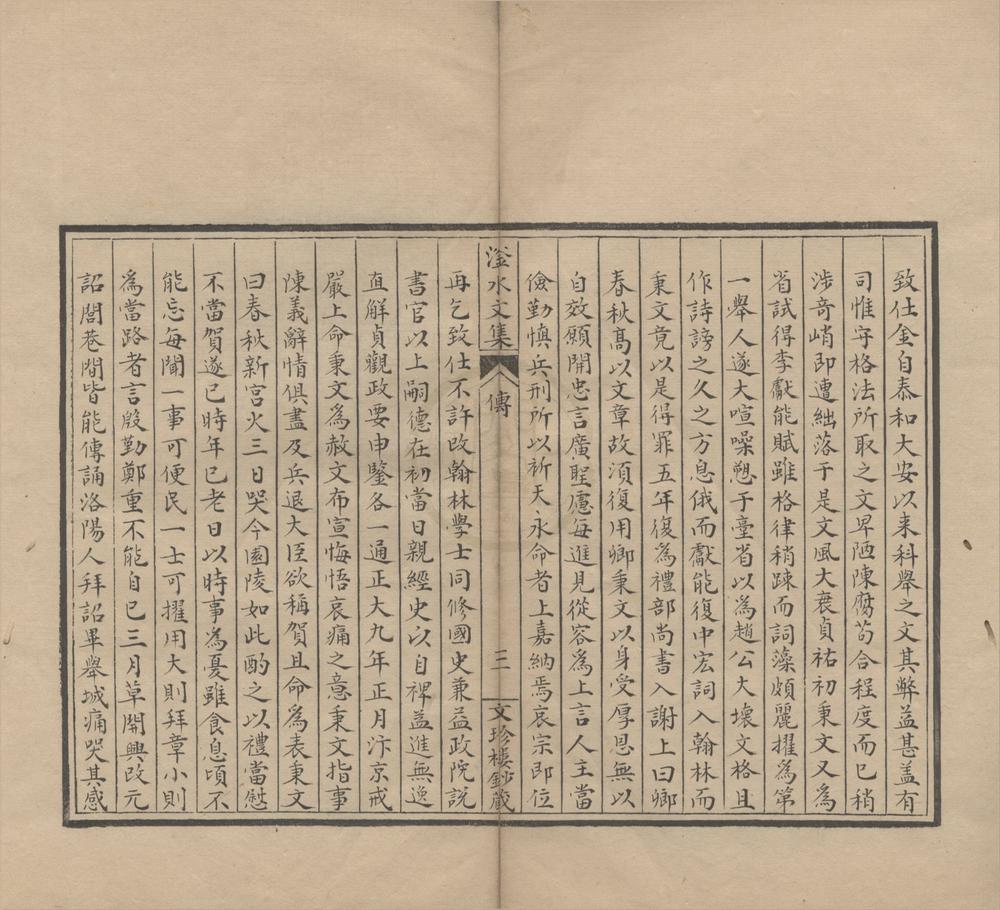 致仕金自泰和大安以来科舉之文其弊益甚盖有
司惟守格法所取之文卑陋陳腐茍合程度而已稍
涉竒峭即遭絀落于是文風大衰貞祐初秉文又為
省試得李獻能賦雖格律稍踈而詞藻頗麗擢為第
一舉人遂大喧噪愬于臺省以為趙公大壞文格且
作詩謗之久之方息俄而獻能復中宏詞入翰林而
秉文竟以是得罪五年復為禮部尚書入謝上曰卿
春秋髙以文章故須復用卿秉文以身受厚恩無以
自效願開忠言廣聖慮每進見從容為上言人主當
儉勤慎兵刑所以祈天永命者上嘉納焉哀宗即位
滏水文集
傳
三
文珍樓鈔藏
再乞致仕不許改翰林學士同修國史兼益政院說
書官以上嗣德在初當日親經史以自裨益進無逸
直解貞觀政要申鑒各一通正大九年正月汴京戒
嚴上命秉文為赦文布宣悔悟哀痛之意秉文指事
陳義辭情俱盡及兵退大臣欲稱賀且命為表秉文
曰春秋新宮火三日哭今園陵如此酌之以禮當慰
不當賀遂已時年已老日以時事為憂雖食息頃不
能忘每聞一事可便民一士可擢用大則拜章小則
為當路者言殷勤鄭重不能自已三月草開興改元
詔閭巷間皆能傳誦洛陽人拜詔畢舉城痛哭其感